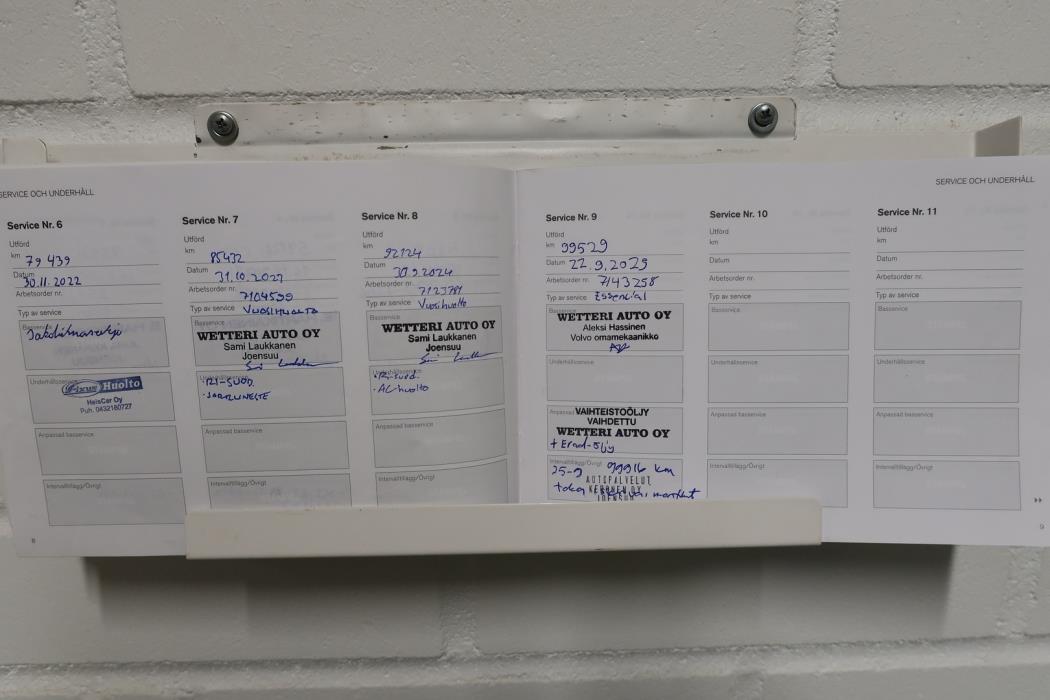 SERVICE OCH UNDERHÅLL
Service Nr. 6
Utförd
km 79 439
Datum 30.11.2022
Arbetsorder nr.
Typ av service
Basservice
Underhållsservice
Fixus Huolto
HeisCar Oy
Puh. 0432180727
Anpassad basservice
Intervalltillägg/Övrigt
8
Service Nr. 7
Utförd
km 85432
Datum 31.10.2023
Arbetsorder nr. 7104599
Typ av service VUOSIHUOLTO
Basservice
WETTERI AUTO OY
Sami Laukkanen
Joensuu
Underhållsservice
·RI-SUOD.
·JARRUNESTE
Anpassad basservice
Intervalltillägg/Övrigt
Service Nr. 8
Utförd
km 92124
Datum 30.9.2024
Arbetsorder nr.
Typ av service Vuosihuolto
Basservice
WETTERI AUTO OY
Sami Laukkanen
Joensuu
Underhållsservice
·Ri-suod.
·AC huolto
Anpassad basservice
Intervalltillägg/Övrigt
SERVICE OCH UNDERHÅLL
Service Nr. 9
Utförd
km 99529
Datum 22.9.2025
Arbetsorder nr. 7143258
Typ av service Essential
Basservice
WETTERI AUTO OY
Aleksi Hassinen
Volvo omamekaanikko
Underhållsservice
Anpassad
VAIHTEISTOÖLJY
VAIHDETTU
WETTERI AUTO OY
+ Erad-öljy
Intervalltillägg/Övrigt
25-9 99916 km
AUTOPALVELUT
KERÄNEN OY
JOENSUU
Service Nr. 10
Utförd
km
Datum
Arbetsorder nr.
Typ av service
Basservice
Underhållsservice
Anpassad basservice
Intervalltillägg/Övrigt
Service Nr. 11
Utförd
km
Datum
Arbetsorder nr.
Typ av service
Basservice
Underhållsservice
Anpassad basservice
Intervalltillägg/Övrigt
9